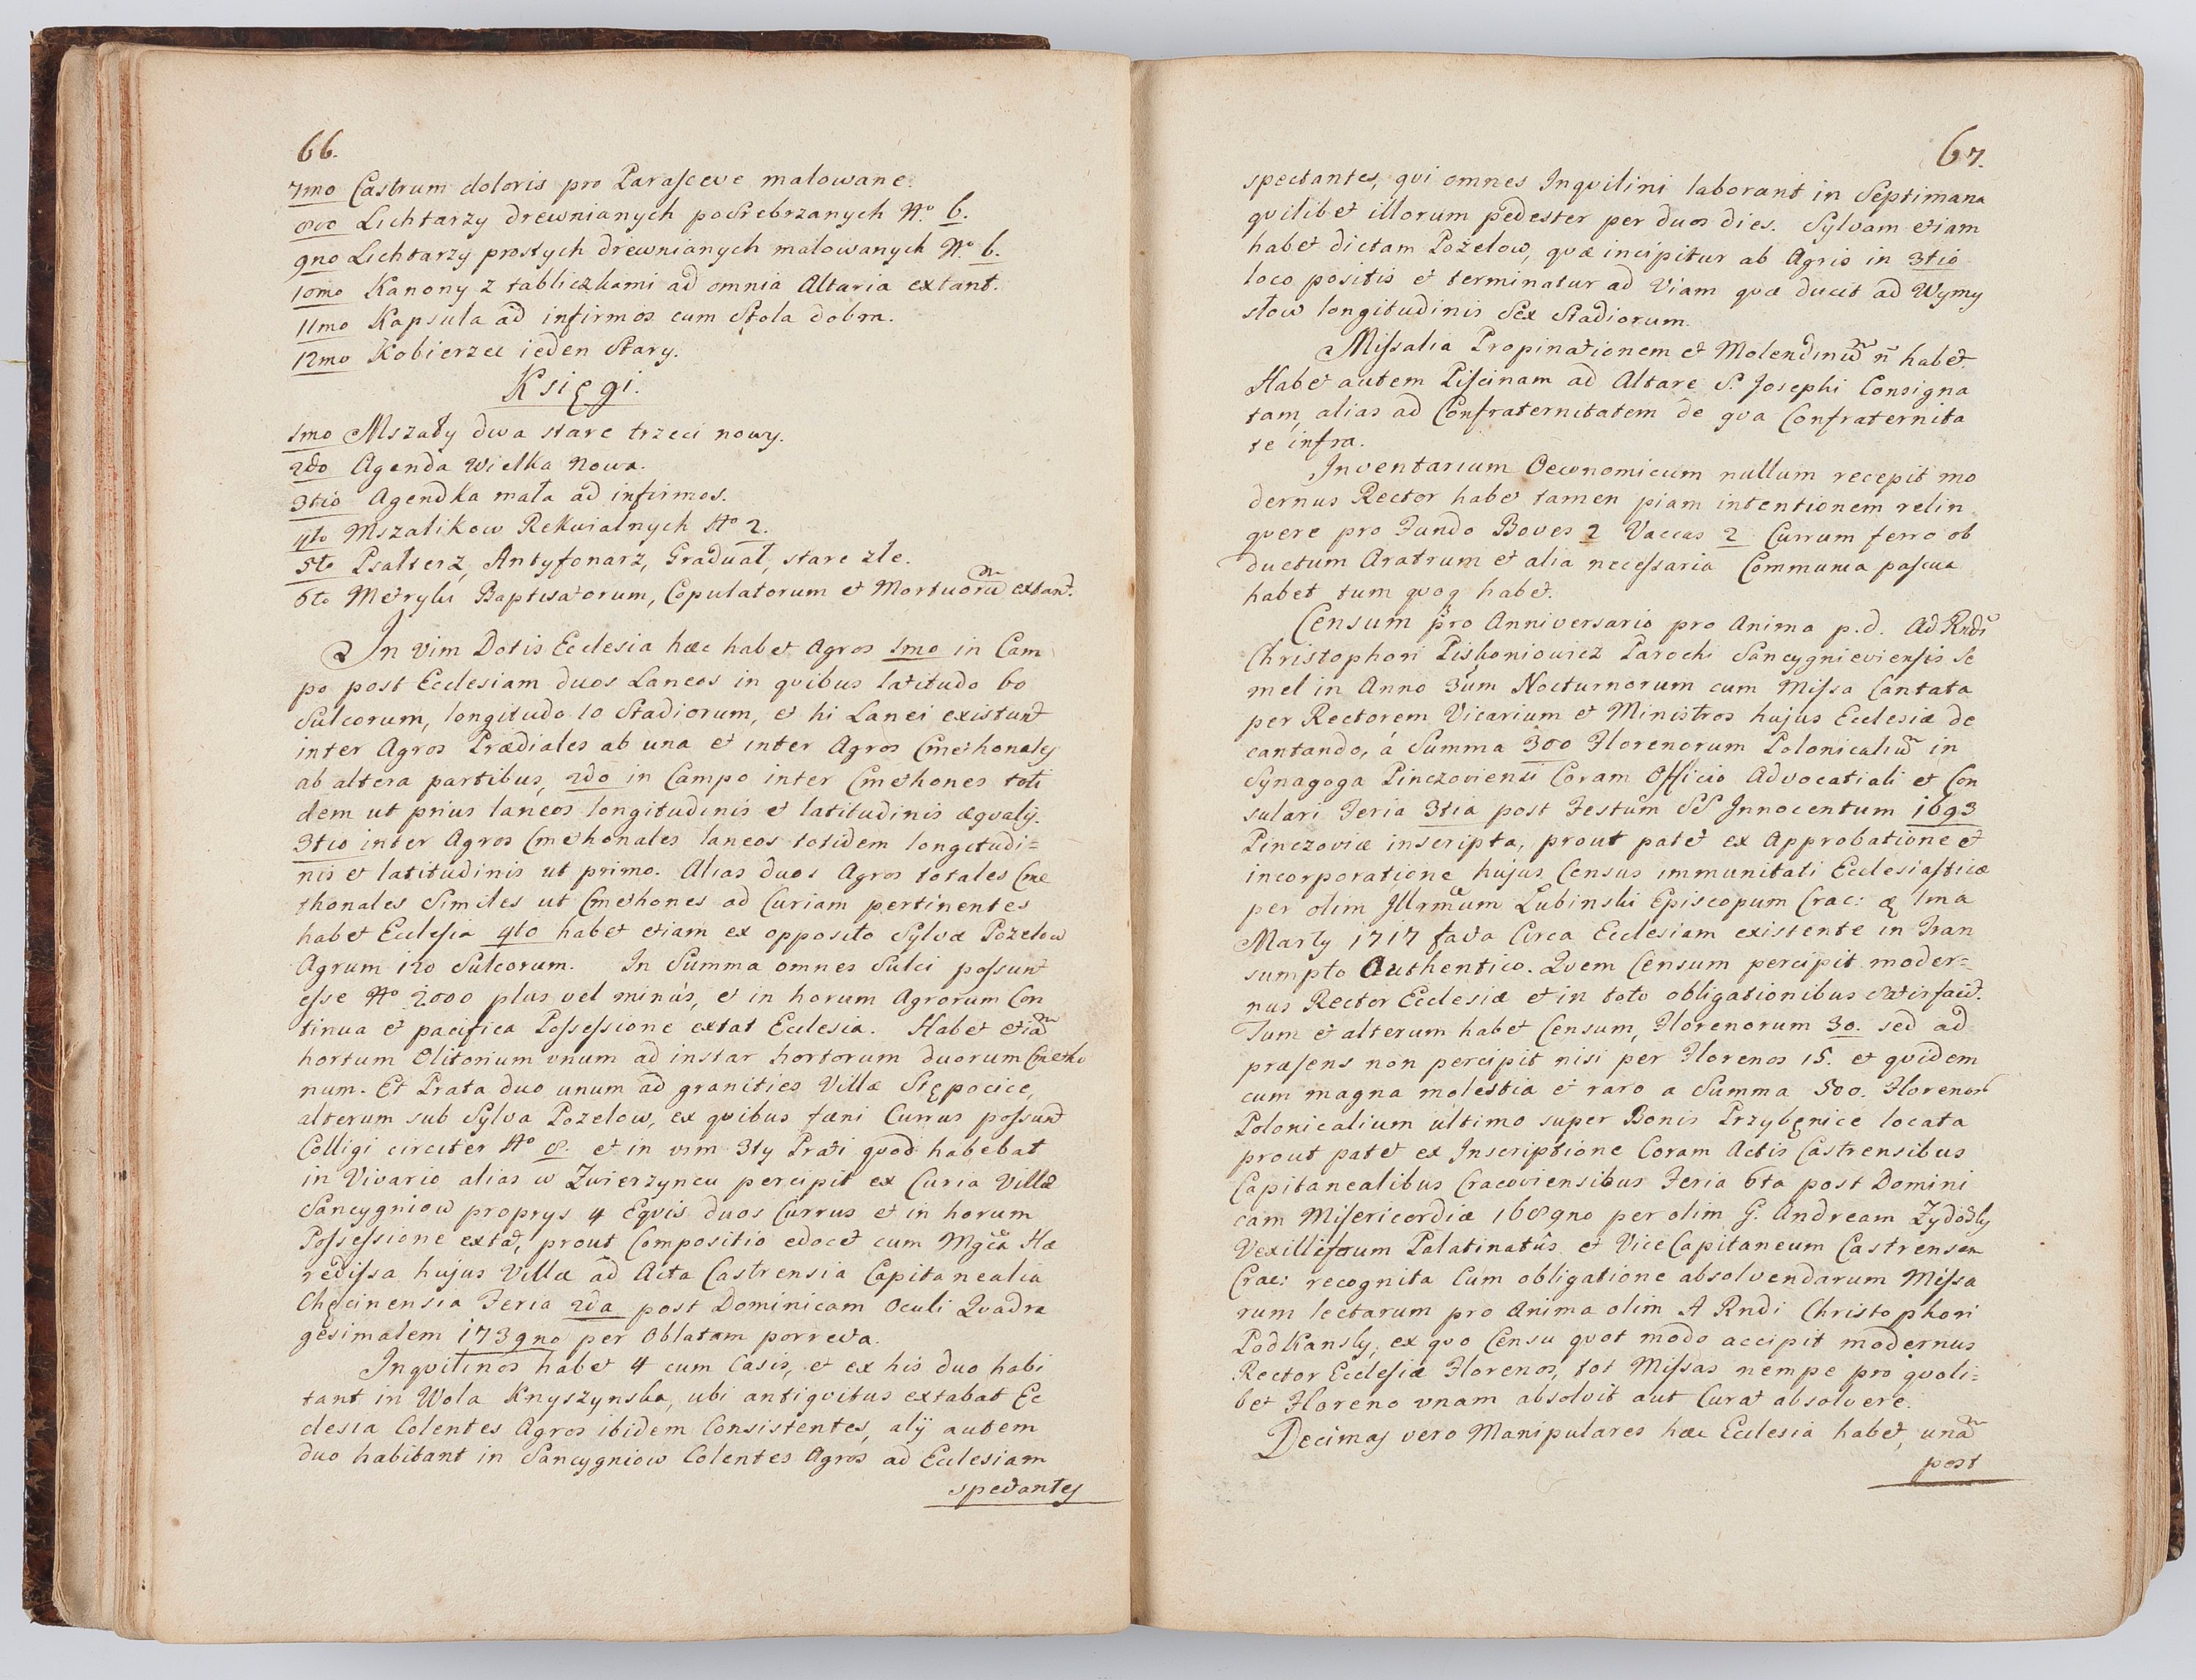 66.
7mo Castrum doloris pro Parasceve malowane.
8vo Lichtarzy drewnianych posrebrzanych No 6.
9no Lichtarzy prostych drewnianych malowanych No 6.
10mo Kanony z tabliczkami ad omnia Altaria extant.
11mo Kapsuła ad infirmos cum Stola dobra.
12mo Kobierzec ieden Stary.
Księgi.
1mo Mszały dwa stare trzeci nowy.
2do Agenda Wielka Nowa.
3tio Agendka mała ad infirmos.
4to Mszalikow Rekwialnych No 2.
5to Psałterz, Antyfonarz, Graduał, stare złe.
6to Metryki Baptisatorum, Copulatorum et Mortuorũ extant.
In Vim Dotis Ecclesia hæc habet Agros 1mo in Cam
po post Ecclesiam duos Laneos in qvibus latitudo 60
Sulcorum, longitudo 10 Stadiorum, et hi Lanei existunt
inter Agros Prædiales ab una et inter Agros Cmethonales
ab altera partibus, 2do in Campo inter Cmethones toti
dem ut prius laneos longitudinis et latitudinis æqvalis.
3tio inter Agros Cmethonales laneos totidem longitudi=
nis et latitudinis ut primo. Alias duos Agros totales Cme
thonales Similes ut Cmethones ad Curiam pertinentes
habet Ecclesia 4to habet etiam ex opposito Sylvæ Pozelow
Agrum 120 Sulcorum. In Summa omnes Sulci possunt
esse No 2000 plus vel minus, et in horum Agrorum Con
tinua et pacifica Possessione extat Ecclesia. Habet etiã
hortum Olitorium vnum ad instar hortorum duorum Cmetho
num. Et Prata duo unum ad granities Villæ Stępocice,
alterum sub Sylva Pozelow, ex qvibus fæni Currus possunt
Colligi circiter No 8. et in vim 3ty Prati qvod habebat
in Vivario alias w Zwierzyncu percipit ex Curia Villæ
Sancygniow proprys 4 Eqvis duos Currus et in horum
Possessione extat, prout Compositio edocet cum Mgca Hæ
redissa hujus Villæ ad Acta Castrensia Capitanealia
Chęcinensia Feria 2da post Dominicam Oculi Qvadra
gesimalem 1739no per Oblatam porrecta.
Inqvilinos habet 4 cum Casis, et ex his duo habi
tant in Wola Knyszynska, ubi antiqvitus extabat Ec
clesia Colentes Agros ibidem Consistentes, alij autem
duo habitant in Sancygniow Colentes Agros ad Ecclesiam
spectantes
67.
spectantes, qvi omnes Inqvilini laborant in Septimana
qvilibet illorum pedester per duos dies. Sylvam etiam
habet dictam Pożelow, qvæ incipitur ab Agris in 3tio
loco positis et terminatur ad Viam qvæ ducit ad Wymy
słow longitudinis Sex Stadiorum.
Missalia Propinationem et Molendinũ ñ habet.
Habet autem Piscinam ad Altare S. Josephi Consigna
tam, alias ad Confraternitatem de qva Confraternita
te infra.
Inventarium Oeconomicum nullum recepit mo
dernus Rector habet tamen piam intentionem relin
qvere pro Fundo Boves 2 Vaccas 2 Currum ferro ob
ductum Aratrum et alia necessaria Communia pascua
habet tum qvoq habet.
Censum pro Anniversario pro Anima p.d. Ad Rndi
Christophori Piskoniowicz Parochi Sancygnieviensis se
mel in Anno 3um Nocturnorum cum Missa Cantata
per Rectorem Vicarium et Ministros hujus Ecclesiæ de
cantando, á Summa 300 Florenorum Polonicaliũ in
Synagoga Pinczoviensi Coram Officio Advocatiali et Con
sulari Feria 3tia post Festum SS Innocentum 1693
Pinczoviæ inscripta, prout patet ex Approbatione et
incorporatione hujus Census immunitati Ecclesiasticæ
per olim Illrmum Lubinski Episcopum Crac: 1ma
Marty 1717 facta Circa Ecclesiam existente in Tran
sumpto Authentico. Qvem Censum percipit moder=
nus Rector Ecclesiæ et in toto obligationibus satisfacit.
Tum et alterum habet Censum, Florenorum 30. sed ad
præsens non percipit nisi per Florenos 15. et qvidem
cum magna molestia et raro a Summa 500. Florenor
Polonicalium ultimo super Bonis Przybęnice locata
prout patet ex Inscriptione Coram Actis Castrensibus
Capitanealibus Cracoviensibus Feria 6ta post Domini
cam Misericordiæ 1689no per olim G. Andream Żydowsky
Vexilliferum Palatinatûs et ViceCapitaneum Castrensem
Crac: recognita Cum obligatione absolvendarum Missa
rum lectarum pro Anima olim A Rndi Christophori
Podkansky, ex qvo Censu qvot modo accipit modernus
Rector Ecclesiæ Florenos, tot Missas nempe pro qvoli=
bet Floreno vnam absolvit aut Curat absolvere.
Decimas vero Manipulares hæc Ecclesia habet, unã
post